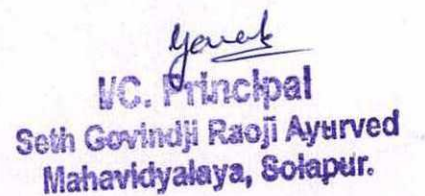 I/C. Principal
Seth Govindji Raoji Ayurved
Mahavidyalaya, Solapur.